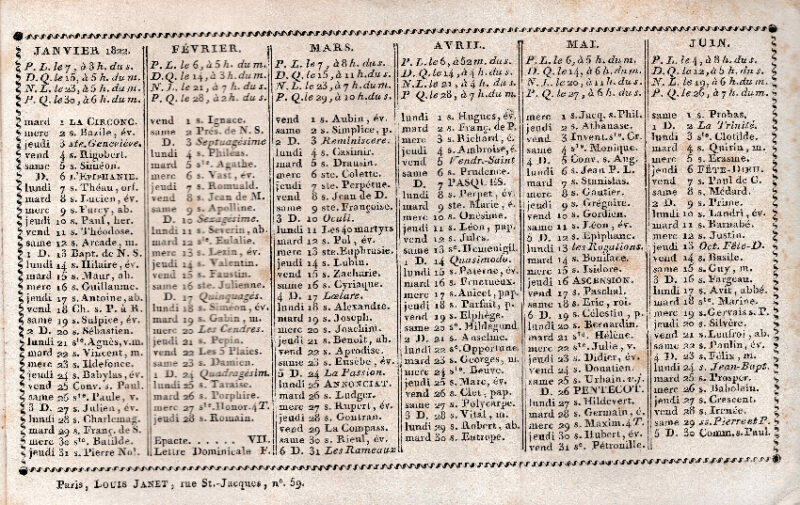 JANVIER 1822.
P. L. le 7, à 8 h. du s.
D. Q. le 15, à 5 h. du m.
N. L. le 23, à 6 h. du m.
P. Q. le 30, à 6 h. du m.
mard 1 LA CIRCONC.
merc 2 s. Basile, év.
jeudi 3 ste. Geneviève.
vend 4 s. Rigobert.
same 5 s. Siméon.
D. 6 L'EPIPHANIE.
lundi 7 s. Théau, orf.
mard 8 s. Lucien, év.
merc 9 s. Furcy, ab.
jeudi 10 s. Paul, her.
vend 11 s. Théodose.
same 12 s. Arcade, m.
1 D. 13 Bapt. de N. S.
lundi 14 s. Hilaire, év.
mard 15 s. Maur, ab.
merc 16 s. Guillaume.
jeudi 17 s. Antoine, ab.
vend 18 Ch. s. P. à R.
same 19 s. Sulpice, év.
2 D. 20 s. Sébastien.
lundi 21 ste. Agnès, v.m.
mard 22 s. Vincent, m.
merc 23 s. Ildefonce.
jeudi 24 s. Babylas, év.
vend 25 Conv. s. Paul.
same 26 ste. Paule, v.
3 D. 27 s. Julien, év.
lundi 28 s. Charlemag.
mard 29 s. Franç. de S.
merc 30 ste. Batilde.
jeudi 31 s. Pierre Nol.
FÉVRIER.
P. L. le 6, à 5 h. du m.
D. Q. le 14, à 3 h. du m.
N. L. le 21, à 7 h. du s.
P. Q. le 28, à 2 h. du s.
vend 1 s. Ignace.
same 2 Prés. de N. S.
D. 3 Septuagésime
lundi 4 s. Philéas.
mard 5 ste. Agathe.
merc 6 s. Vast, év.
jeudi 7 s. Romuald.
vend 8 s. Jean de M.
same 9 s. Apolline.
D. 10 Sexagésime.
lundi 11 s. Severin, ab.
mard 12 ste. Eulalie.
merc 13 s. Lezin, év.
jeudi 14 s. Valentin.
vend 15 s. Faustin.
same 16 ste. Julienne.
D. 17 Quinquagés.
lundi 18 s. Siméon, év.
mard 19 s. Gabin, m.
merc 20 Les Cendres.
jeudi 21 s. Pepin.
vend 22 Les 5 Plaies.
same 23 s. Damien.
1 D. 24 Quadragésim.
lundi 25 s. Taraise.
mard 26 s. Porphire.
merc 27 ste. Honor. 4 T.
jeudi 28 s. Romain.
Epacte. . . . . . VII.
Lettre Dominicale F.
MARS.
P. L. le 7, à 8 h. du s.
D. Q. le 15, à 11 h. du s.
N. L. le 23, à 7 h. du m.
P. Q. le 29, à 10 h. du s.
vend 1 s. Aubin, év.
same 2 s. Simplice, p.
2 D. 3 Reminiscere.
lundi 4 s. Casimir.
mard 5 s. Drausin.
merc 6 ste. Colette.
jeudi 7 ste. Perpétue.
vend 8 s. Jean de D.
same 9 ste. Françoise.
3 D. 10 Oculi.
lundi 11 Les 40 martyrs
mard 12 s. Pol, év.
merc 13 ste. Euphrasie.
jeudi 14 s. Lubin.
vend 15 s. Zacharie.
same 16 s. Cyriaque.
4 D. 17 Lætare.
lundi 18 s. Alexandre.
mard 19 s. Joseph.
merc 20 s. Joachim.
jeudi 21 s. Benoît, ab.
vend 22 s. Aprodise.
same 23 s. Eusèbe, év.
5 D. 24 La Passion.
lundi 25 ANNONCIAT.
mard 26 s. Ludger.
merc 27 s. Rupert, év.
jeudi 28 s. Gontran.
vend 29 La Compass.
same 30 s. Rieul, év.
6 D. 31 Les Rameaux
AVRIL.
P. L. le 6, à 2 m. du s.
D. Q. le 14, à 2 h. du s.
N. L. le 21, à 4 h. du s.
P. Q. le 28, à 7 h. du m.
lundi 1 s. Hugues, év.
mard 2 s. Franç. de P.
merc 3 s. Richard, é.
jeudi 4 s. Ambroise, é.
vend 5 Vendr-Saint
same 6 s. Prudence.
D. 7 PASQUES.
lundi 8 s. Perpet, év.
mard 9 ste. Marie, é.
merc 10 s. Onésime.
jeudi 11 s. Léon, pap.
vend 12 s. Jules.
same 13 s. Hemenigil.
1 D. 14 Quasimodo.
lundi 15 s. Paterne, év.
mard 16 s. Fructueux.
merc 17 s. Anicet, pap.
jeudi 18 s. Parfait, p.
vend 19 s. Elphège.
same 20 ste. Hildegund
2 D. 21 s. Anselme.
lundi 22 s. Opportune.
mard 23 s. Georges, m.
merc 24 ste. Beuve.
jeudi 25 s. Marc, év.
vend 26 s. Clet, pap.
same 27 s. Polycarpe.
3 D. 28 s. Vital, m.
lundi 29 s. Robert, ab.
mard 30 s. Eutrope.
MAI.
P. L. le 6, à 5 h. du m.
D. Q. le 14, à 6 h. du m.
N. L. le 20, à 11 h. du s.
P. Q. le 27, à 6 h. du s.
merc 1 s. Jacq. s. Phil.
jeudi 2 s. Athanase.
vend 3 Invent. ste. Cr.
same 4 ste. Monique.
4 D. 5 Conv. s. Aug.
lundi 6 s. Jean P. L.
mard 7 s. Stanislas.
merc 8 s. Gautier.
jeudi 9 s. Grégoire.
vend 10 s. Gordien.
same 11 s. Léon, év.
5 D. 12 s. Epiphane.
lundi 13 les Rogations.
mard 14 s. Boniface.
merc 15 s. Isidore.
jeudi 16 ASCENSION.
vend 17 s. Paschal.
same 18 s. Eric, roi.
6 D. 19 s. Célestin, p.
lundi 20 s. Bernardin.
mard 21 ste. Hélène.
merc 22 ste. Julie, v.
jeudi 23 s. Didier, év.
vend 24 s. Donatien.
same 25 s. Urbain. v.-j.
D. 26 PENTECOT.
lundi 27 s. Hildevert.
mard 28 s. Germain, é.
merc 29 s. Maxim. 4 T.
jeudi 30 s. Hubert, év.
vend 31 ste. Pétronille.
JUIN.
P. L. le 4, à 8 h. du s.
D. Q. le 12, à 5 h. du s.
N. L. le 19, à 6 h. du m.
P. Q. le 26, à 7 h. du m.
same 1 s. Probas.
1 D. 2 La Trinité.
lundi 3 ste. Clotilde.
mard 4 s. Quirin, m.
merc 5 s. Erasme.
jeudi 6 FÊTE-DIEU.
vend 7 s. Paul de C.
same 8 s. Médard.
2 D. 9 s. Prime.
lundi 10 s. Landri, év.
mard 11 s. Barnabé.
merc 12 s. Justin.
jeudi 13 Oct. Fête-D.
vend 14 s. Basile.
same 15 s. Guy, m.
3 D. 16 s. Fargeau.
lundi 17 s. Avit, abbé.
mard 18 ste. Marine.
merc 19 s. Gervais s. P.
jeudi 20 s. Silvère.
vend 21 s. Leufroi, ab.
same 22 s. Paulin, év.
4 D. 23 s. Félix, m.
lundi 24 s. Jean-Bapt.
mard 25 s. Prosper.
merc 26 s. Babolein.
jeudi 27 s. Crescent.
vend 28 s. Irénée.
same 29 ss. Pierre et P.
5 D. 30 Comm. s. Paul.
Paris, LOUIS JANET, rue St.-Jacques, n°. 59.